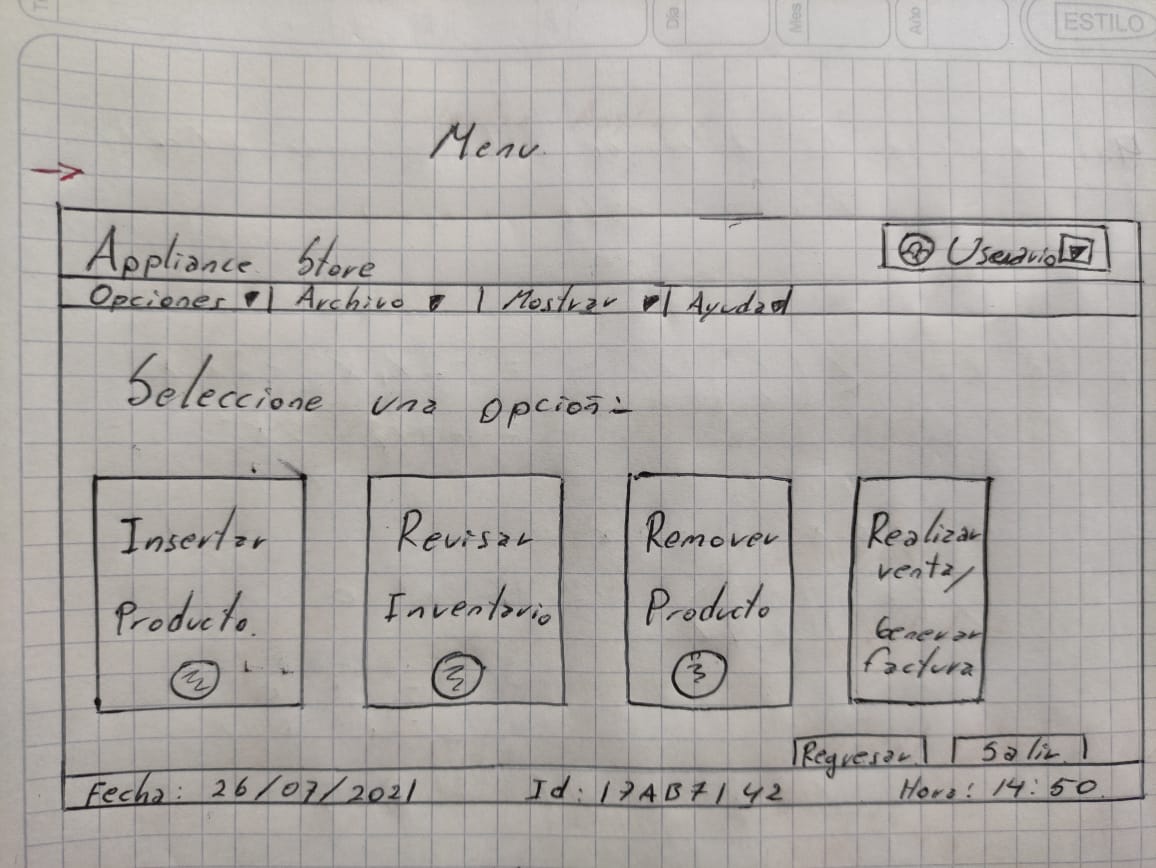 Día
Mes
Año
ESTILO
Menu
Appliance Store
Usuario
Opciones
Archivo
Mostrar
Ayuda
Seleccione una opción:
Insertar
Producto.
Revisar
Inventario
Remover
Producto
Realizar
venta/
Generar
factura
Regresar
Salir
Fecha: 26/07/2021
Id: 17AB7142
Hora: 14:50